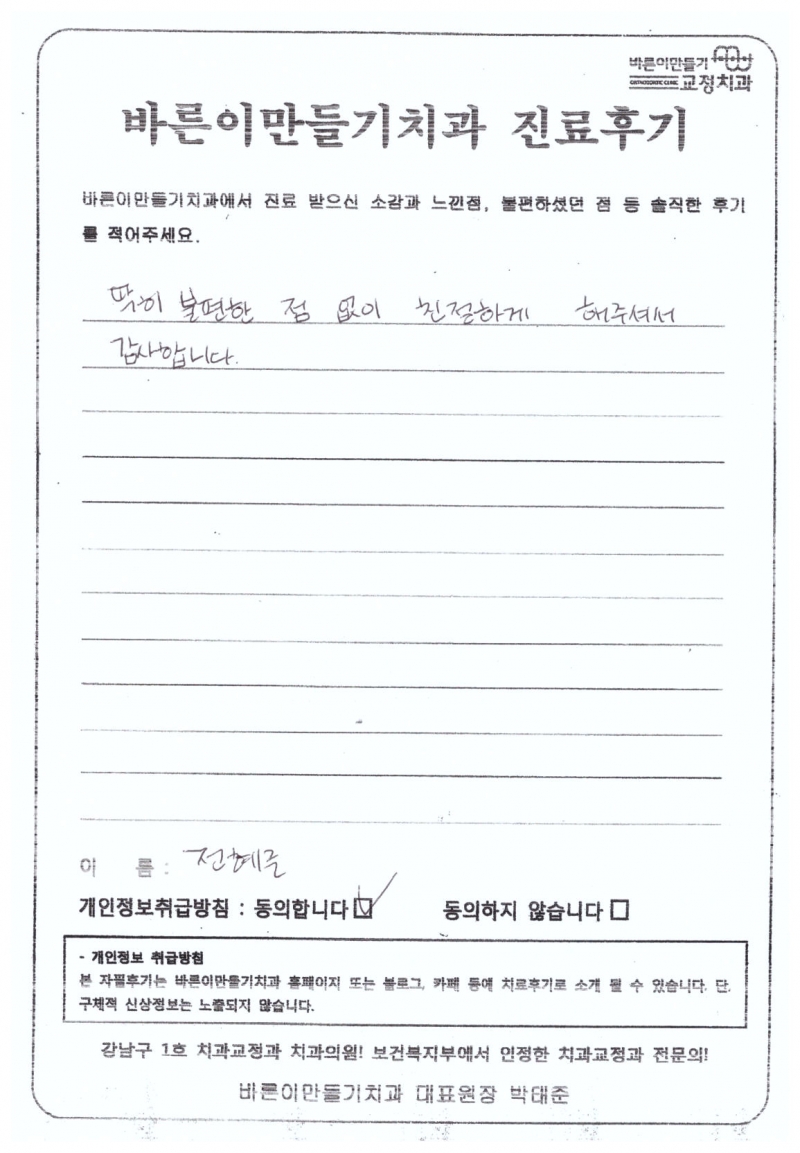 바른이만들기
ORTHODONTIC CLINIC 교정치과
바른이만들기치과 진료후기
바른이만들기치과에서 진료 받으신 소감과 느낀점, 불편하셨던 점 등 솔직한 후기
를 적어주세요.
딱히 불편한 점 없이 친절하게 해주셔서
감사합니다.
이 름 : 전혜준
개인정보취급방침 : 동의합니다 ☑ 동의하지 않습니다 □
- 개인정보 취급방침
본 자필후기는 바른이만들기치과 홈페이지 또는 블로그, 카페 등에 치료후기로 소개 될 수 있습니다. 단,
구체적 신상정보는 노출되지 않습니다.
강남구 1호 치과교정과 치과의원! 보건복지부에서 인정한 치과교정과 전문의!
바른이만들기치과 대표원장 박태준